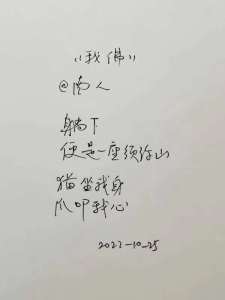 《我佛》
@南人
躺下
便是一座须弥山
猫坐我身
爪叩我心
2022-10-25